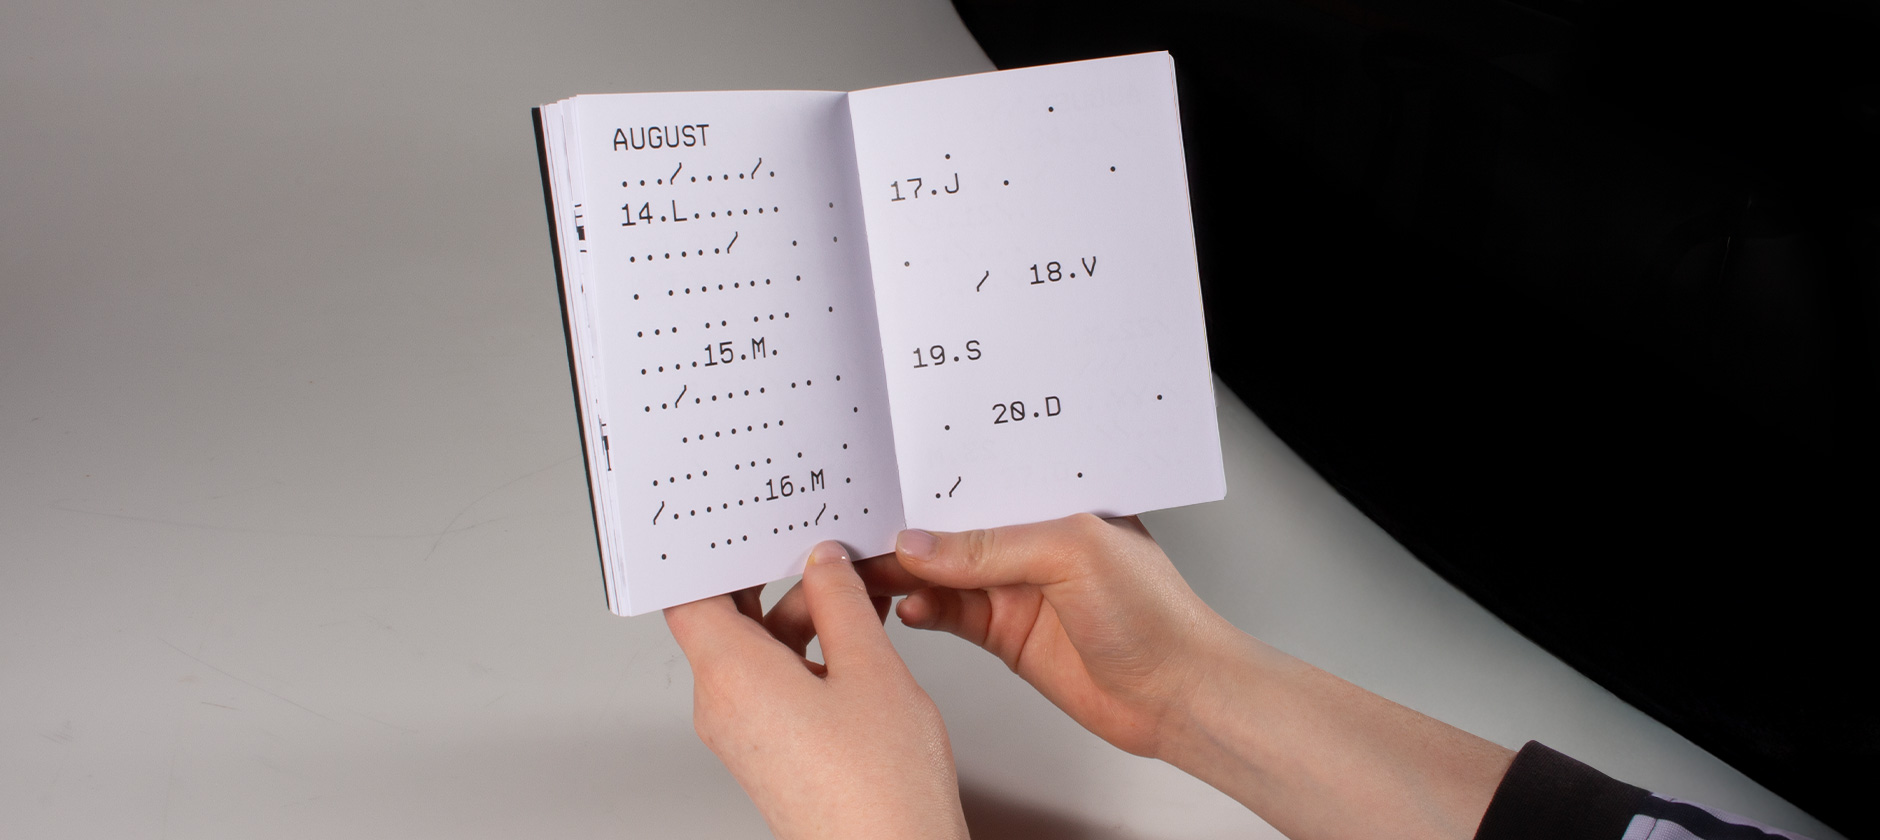 AUGUST
.../..../.
14.L...... .
....../ . .
. ....... .
... .. ... .
....15.M.
../..... .. .
....... .
.... ... . .
/......16.M .
. ... .../. .
.
.
17.J . .
.
/ 18.V
19.S
. 20.D .
./ .